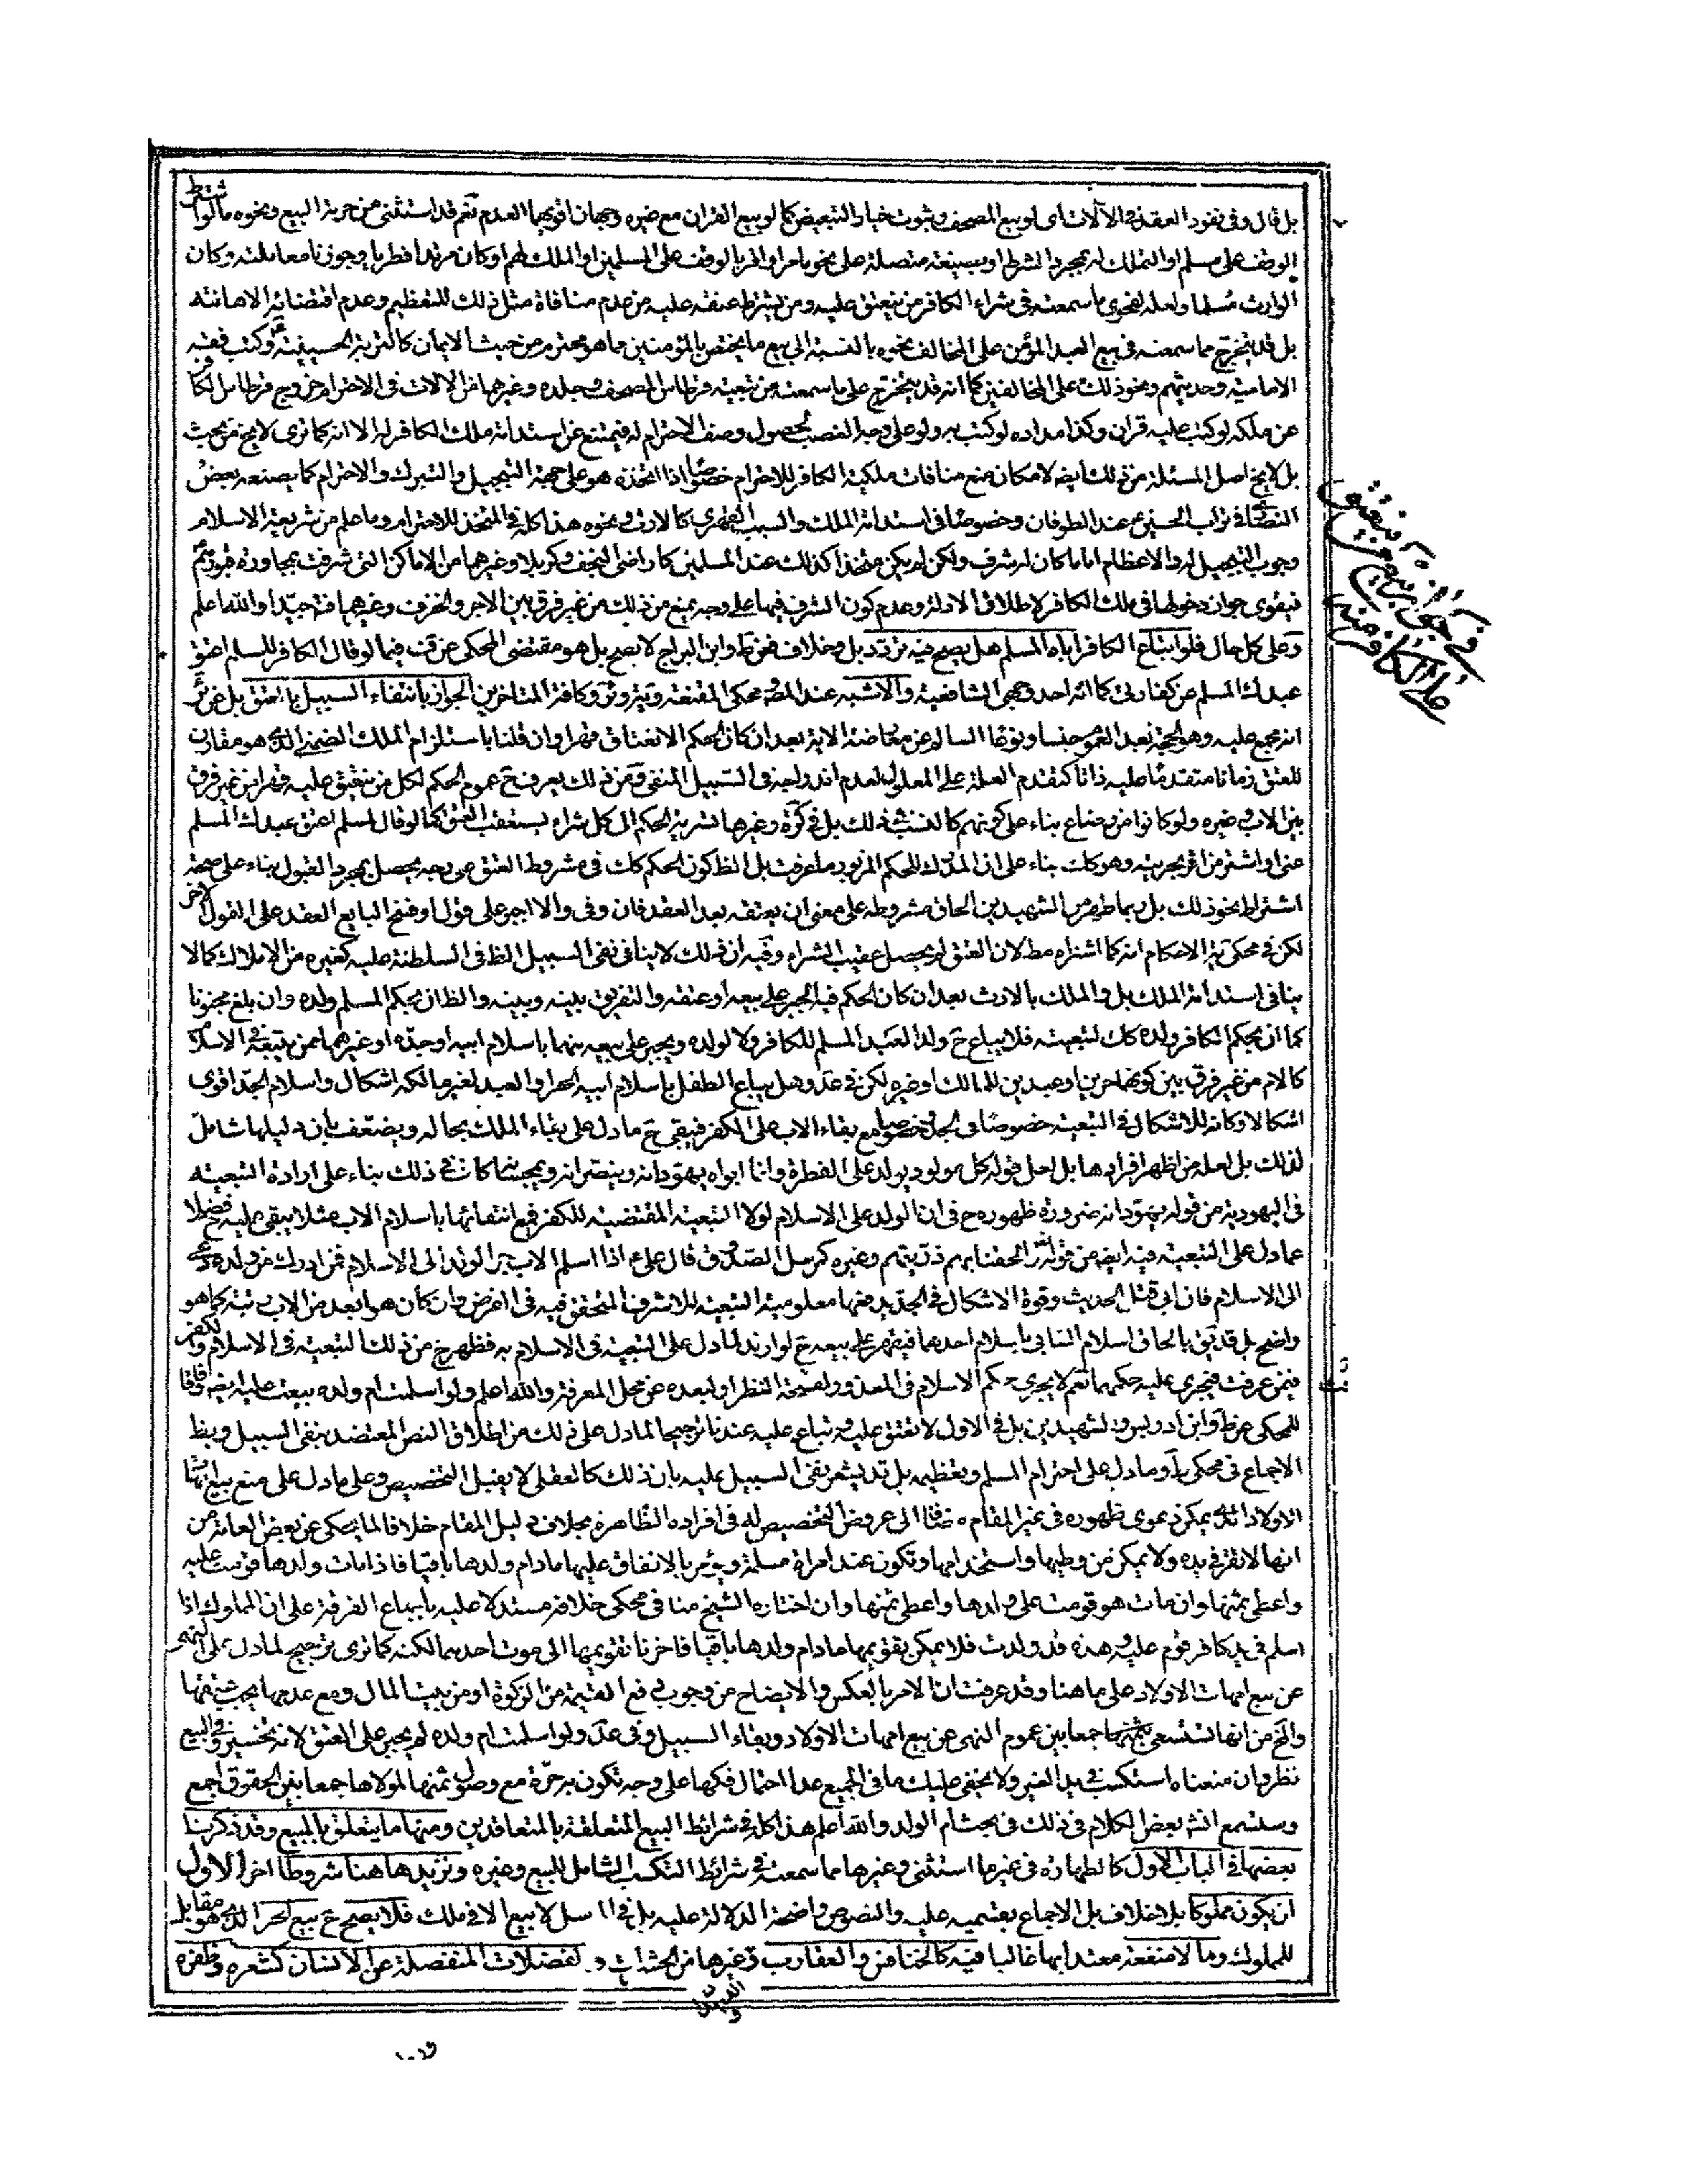 بل قال وفى نفوذ العقد فى الآلات اى لو بيع المصحف وثبوت خيار التبعيض كما لو بيع القران مع غيره وجهان اقويهما العدم نعم قد استثنى من حرمة البيع ونحوه ما لو اشترط
الوقف على مسلم او التملك له بمجرد الشرط او بصيغة متصلة على نحو ما مر او اقر بالوقف على المسلمين او الملك لهم او كان مرتدا فطريا وجوزنا معاملته وكان
الوارث مسلما ولعله لفحوى ما سمعته فى شراء الكافر من ينعتق عليه ومن يشترط عتقه عليه من عدم منافاة مثل ذلك للتعظيم وعدم اقتضائه الاهانة
بل قد يتخرج مما سمعته فى بيع العبد المؤمن على المخالف نحوه بالنسبة الى بيع ما يختص بالمؤمنين مما هو محترم من حيث الايمان كالتربة الحسينية وكتب فقه
الامامية وحديثهم ونحو ذلك على المخالفين كما انه قد يتخرج على ما سمعت من تبعية قرطاس المصحف وجلده وغيرهما من الالات فى الاحترام خروج قرطاس الكافر
عن ملكه لو كتب عليه قران وكذا مداده لو كتب به ولو على وجه الغصب لحصول وصف الاحترام له فيمتنع عن استدامة ملك الكافر له الا انه كما ترى لا يخ من بحث
بل لا يخ اصل المسئلة من ذلك ايضا لامكان منع منافات ملكية الكافر للاحترام خصوصا اذا اتخذه هو على جهة التبجيل والتبرك والاحترام كما يصنعه بعض
النصارى فى تراب الحسين ع عند الطوفان وخصوصا فى استدامة الملك والسبب القهرى كالارث ونحوه هذا كله فى المتخذ للاحترام وما علم من شريعة الاسلام
وجوب التبجيل له والاعظام اما ما كان له شرف ولكن لم يكن متخذا كذلك عند المسلمين كاراضى النجف وكربلا وغيرهما من الاماكن التى شرفت بمجاورة قبورهم
فيقوى جواز دخولها فى ملك الكافر لاطلاق الادلة وعدم كون الشرف فيها على وجه يمنع من ذلك من غير فرق بين الاجر والخزف وغيرهما فتامل جيدا والله اعلم
وعلى كل حال فلو ابتاع الكافر اباه المسلم هل يصح فيه تردد بل وخلاف فعن ط وابن البراج لا يصح بل هو مقتضى المحكى عن ف فيما لو قال الكافر للمسلم اعتق
عبدك المسلم عن كفارتى كما انه احد وجهى الشافعية والاشبه عند المص ومحكى المقنعة ويه وئر وكافة المتاخرين الجواز بانتفاء السبيل بالعتق بل عن ئر
انه مجمع عليه وهو الحجة بعد العموم جنسا ونوعا السالم عن معارضة الاية بعد ان كان الحكم الانعتاق قهرا وان قلنا باستلزام الملك الضمنى الذى هو مقارن
للعتق زمانا متقدما عليه ذاتا كتقدم العلة على المعلول لعدم اندراجه فى السبيل المنفى ومن ذلك يعرف ح عموم الحكم لكل من ينعتق عليه قهرا من غير فرق
بين الاب وغيره ولو كانوا من رضاع بناء على كونهم كالنسب فى ذلك بل فى كره وغيرها تسرية الحكم الى كل شراء يستعقب العتق كما لو قال لمسلم اعتق عبدك المسلم
عنى او اشترى من اقر بحريته وهو كك بناء على ان المدرك للحكم المزبور ما عرفت بل الظ كون الحكم كك فى مشروط العتق على وجه يحصل بمجرد القبول بناء على صحة
اشتراط نحو ذلك بل ربما ظهر من الشهيدين الحاق مشروطه على معنى ان يعتقه بعد العقد فان وفى والا اجبر على قول او فسخ البايع العقد على القول الاخر
لكن فى محكى نهاية الاحكام انه كما اشتراه مط لان العتق لم يحصل عقيب الشراء وفيه ان ذلك لا ينافى نفى السبيل الظ فى السلطنة عليه كغيره من الاملاك كما لا
ينافى استدامة الملك بل والملك بالارث بعد ان كان الحكم فيه الجبر على بيعه او عتقه والتفريق بينه وبينه والظ ان بحكم المسلم ولده وان بلغ مجنونا
كما ان بحكم الكافر ولده كك لتبعيته فلا يباع ح ولد العبد المسلم للكافر ولا لولده ويجبر على بيعه منهما باسلام ابيه او جده او غيرهما ممن يتبعه فى الاسلام
كالام من غير فرق بين كونهما حرين او عبدين للمالك او غيره لكن فى عد وهل يباع الطفل باسلام ابيه الحر او العبد لغير مالكه اشكال واسلام الجد اقوى
اشكالا وكانه للاشكال فى التبعية خصوصا فى الجد وخصوصا مع بقاء الاب على الكفر فيبقى ح ما دل على بقاء الملك بحاله ويضعف بان دليلها شامل
لذلك بل لعله من اظهر افرادها بل لعل قوله كل مولود يولد على الفطرة وانما ابواه يهودانه وينصرانه ويمجسانه كاف فى ذلك بناء على ارادة التبعية
فى اليهودية من قوله يهودانه ضرورة ظهوره ح فى ان الولد على الاسلام لولا التبعية المقتضية للكفر فمع انتفائها باسلام الاب مثلا يبقى عليه فضلا
عما دل على التبعية فيه ايضا من قوله الحقنا بهم ذريتهم وغيره كمرسل الصدوق قال على ع اذا اسلم الاب جر الولد الى الاسلام فمن ادرك من ولده دعى
الى الاسلام فان ابى قتل الحديث وقوة الاشكال فى الجد يدفعها معلومية التبعية للاشرف المتحقق فيه فى الفرض وان كان هو ابعد من الاب مرتبة كما هو
واضح بل قد يق بالحاق اسلام السابى باسلام احدهما فيقهر على بيعه ح لو اريد لما دل على التبعية فى الاسلام به فظهر ح من ذلك التبعية فى الاسلام والكفر
فيمن عرفت فيجرى عليه حكمهما نعم لا يجرى حكم الاسلام فى المعذور لفسحة النظر او لبعده عن محل المعرفة والله اعلم ولو اسلمت ام ولده بيعت عليه ايضا وفاقا
للمحكى عن ط وابن ادريس والشهيدين بل فى الاول لا تعتق عليه وتباع عليه عندنا ترجيحا لما دل على ذلك من اطلاق النص المعتضد بنفى السبيل وبظ
الاجماع فى محكى ط وما دل على احترام المسلم وتعظيمه بل قد يشعر نفى السبيل عليه بان ذلك كالعقلى لا يقبل التخصيص وعلى ما دل على منع بيع امهات
الاولاد الذى يمكن دعوى ظهوره فى غير المقام مضافا الى عروض التخصيص له فى افراده الظاهرة بخلاف دليل المقام خلافا لما يحكى عن بعض العامة من
انها لا تقر فى يده ولا يمكن من وطيها واستخدامها وتكون عند امراة مسلمة ويؤمر بالانفاق عليها ما دام ولدها باقيا فاذا مات ولدها قومت عليه
واعطى ثمنها وان مات هو قومت على ولدها واعطى ثمنها وان اختاره الشيخ منا فى محكى خلافه مستدلا عليه باجماع الفرقة على ان المملوك اذا
اسلم فى يد كافر قوم عليه وهذه قد ولدت فلا يمكن تقويمها ما دام ولدها باقيا فاخرنا تقويمها الى موت احدهما لكنه كما ترى ترجيح لما دل على النهى
عن بيع امهات الاولاد على ما هنا وقد عرفت ان الامر بالعكس والايضاح من وجوب دفع القيمة من الزكوة او من بيت المال ومع عدمها يجب نفقتها
والمخ من انها تستسعى بثمنها جمعا بين عموم النهى عن بيع امهات الاولاد وبقاء السبيل وفى عد ولو اسلمت ام ولده لم يجبر على العتق لانه تخسير وفى البيع
نظر وان منعناه استكسبت فى يد الغير ولا يخفى عليك ما فى الجميع عدا احتمال فكها على وجه تكون به حرة مع وصول ثمنها لمولاها جمعا بين الحقوق اجمع
وستسمع انش بعض الكلام فى ذلك فى بحث ام الولد والله اعلم هذا كله فى شرائط البيع المتعلقة بالمتعاقدين ومنها ما يتعلق بالمبيع وقد ذكرنا
بعضها فى الباب الاول كالطهارة فى غير ما استثنى وغيرها مما سمعته فى شرائط التكسب الشامل للبيع وغيره ونزيدها هنا شروطا اخر الاول
ان يكون مملوكا بلا خلاف بل الاجماع بقسميه عليه والنصوص واضحة الدلالة عليه بل فى المرسل لا بيع الا فى ملك فلا يصح ح بيع الحر الذى هو مقابل
للمملوك وما لا منفعة معتدا بها غالبا فيه كالخنافس والعقارب وغيرها من الحشرات و الفضلات المنفصلة عن الانسان كشعره وظفره